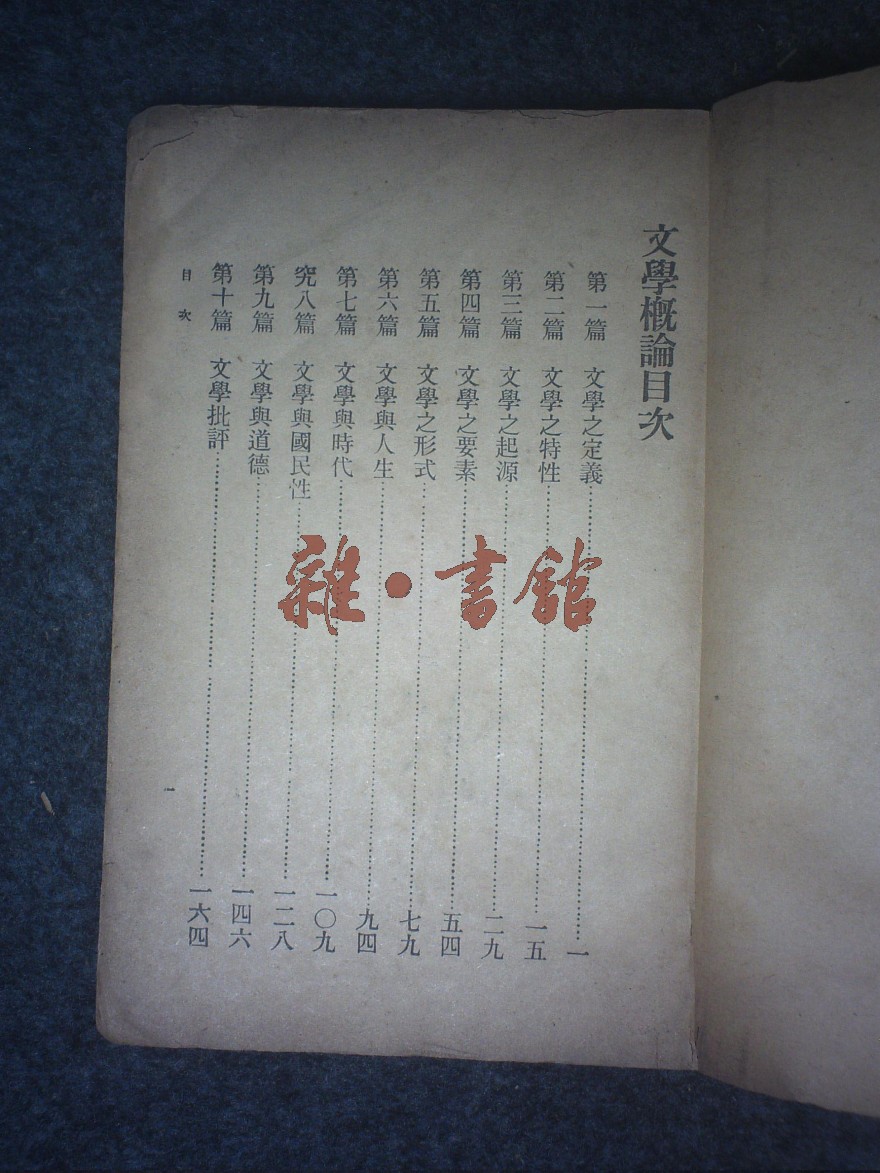 文學概論目次
第一篇 文學之定義……一
第二篇 文學之特性……一五
第三篇 文學之起源……二九
第四篇 文學之要素……五四
第五篇 文學之形式……七九
第六篇 文學與人生……九四
第七篇 文學與時代……一〇九
究八篇 文學與國民性……一二八
第九篇 文學與道德……一四六
第十篇 文學批評……一六四
目次
一
雜·書館